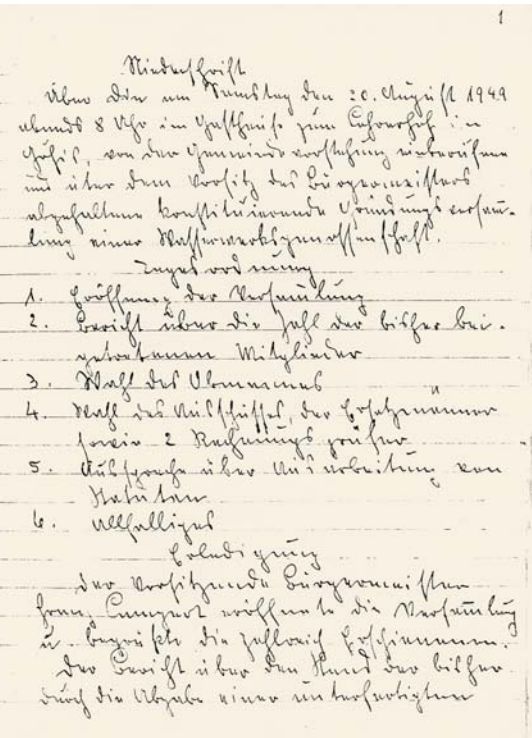 1
Niederschrift
über die am Samstag den 20. August 1949
abends 8 Uhr im Gasthause zum in
Göfis, von der Gemeindevorstehung einberufene
und unter dem Vorsitz des Bürgermeisters
abgehaltene konstituierende Gründungsversamm-
lung einer Wasserwerksgenossenschaft.
Tagesordnung
1. Eröffnung der Versammlung
2. Bericht über die Zahl der bisher bei-
getretenen Mitglieder
3. Wahl des Obmannes
4. Wahl des Ausschusses, der Ersatzmänner
sowie 2 Rechnungsprüfer
5. Aussprache über Ausarbeitung von
Statuten
6. Allfälliges
Erledigung
Der Vorsitzende Bürgermeister
Franz Lampert eröffnete die Versammlung
u. begrüßte die zahlreich Erschienenen.
Der Bericht über den Stand der bisher
durch die Abgabe einer unterfertigten